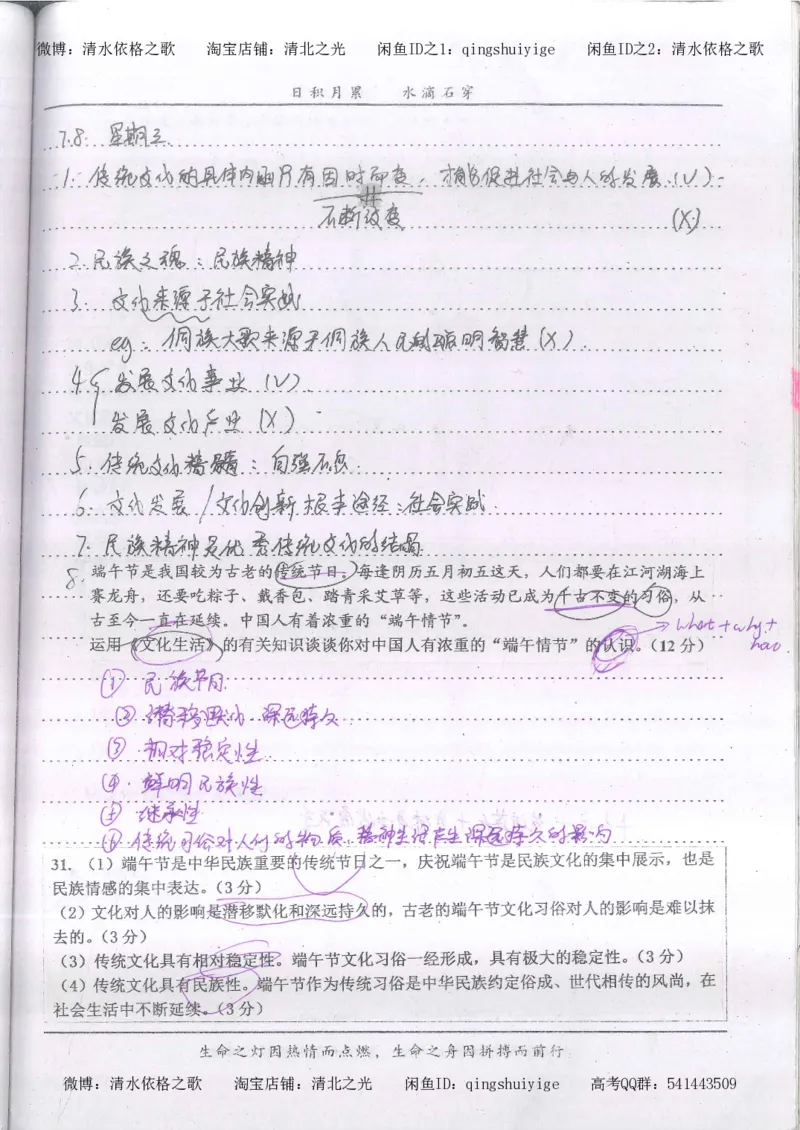 微博：清水依格之歌 淘宝店铺：清北之光 闲鱼ID之1：qingshuiyige 闲鱼ID之2：清水依格之歌
日积月累 水滴石穿
7.8. 星期三.
1. 传统文化的具体内涵只有因时而变，才能促进社会与人的发展.(√)
不断改变 (×)
2. 民族之魂：民族精神
3. 文化来源于社会实践
eg：侗族大歌来源于侗族人民的聪明智慧(×).
4. { 发展文化事业 (√)
发展文化产业 (×)
5. 传统文化精髓：自强不息.
6. 文化发展/文化创新根本途径：社会实践.
7. 民族精神是优秀传统文化的结晶
8. 端午节是我国较为古老的传统节日。每逢阴历五月初五这天，人们都要在江河湖海上
赛龙舟，还要吃粽子、戴香包、踏青采艾草等，这些活动已成为千古不变的习俗，从
古至今一直在延续。中国人有着浓重的“端午情节”。
what+why+
运用《文化生活》的有关知识谈谈你对中国人有浓重的“端午情节”的认识。（12 分）
how.
① 民族节日.
② 潜移默化 深远持久
③ 相对稳定性.
④ 鲜明民族性
⑤ 继承性
⑥ 传统习俗对人们的物质、精神生活产生深远持久的影响
31.（1）端午节是中华民族重要的传统节日之一，庆祝端午节是民族文化的集中展示，也是
民族情感的集中表达。（3 分）
（2）文化对人的影响是潜移默化和深远持久的，古老的端午节文化习俗对人的影响是难以抹
去的。（3 分）
（3）传统文化具有相对稳定性。端午节文化习俗一经形成，具有极大的稳定性。（3 分）
（4）传统文化具有民族性。端午节作为传统习俗是中华民族约定俗成、世代相传的风尚，在
社会生活中不断延续。（3 分）
生命之灯因热情而点燃，生命之舟因拼搏而前行
微博：清水依格之歌 淘宝店铺：清北之光 闲鱼ID：qingshuiyige 高考QQ群：541443509